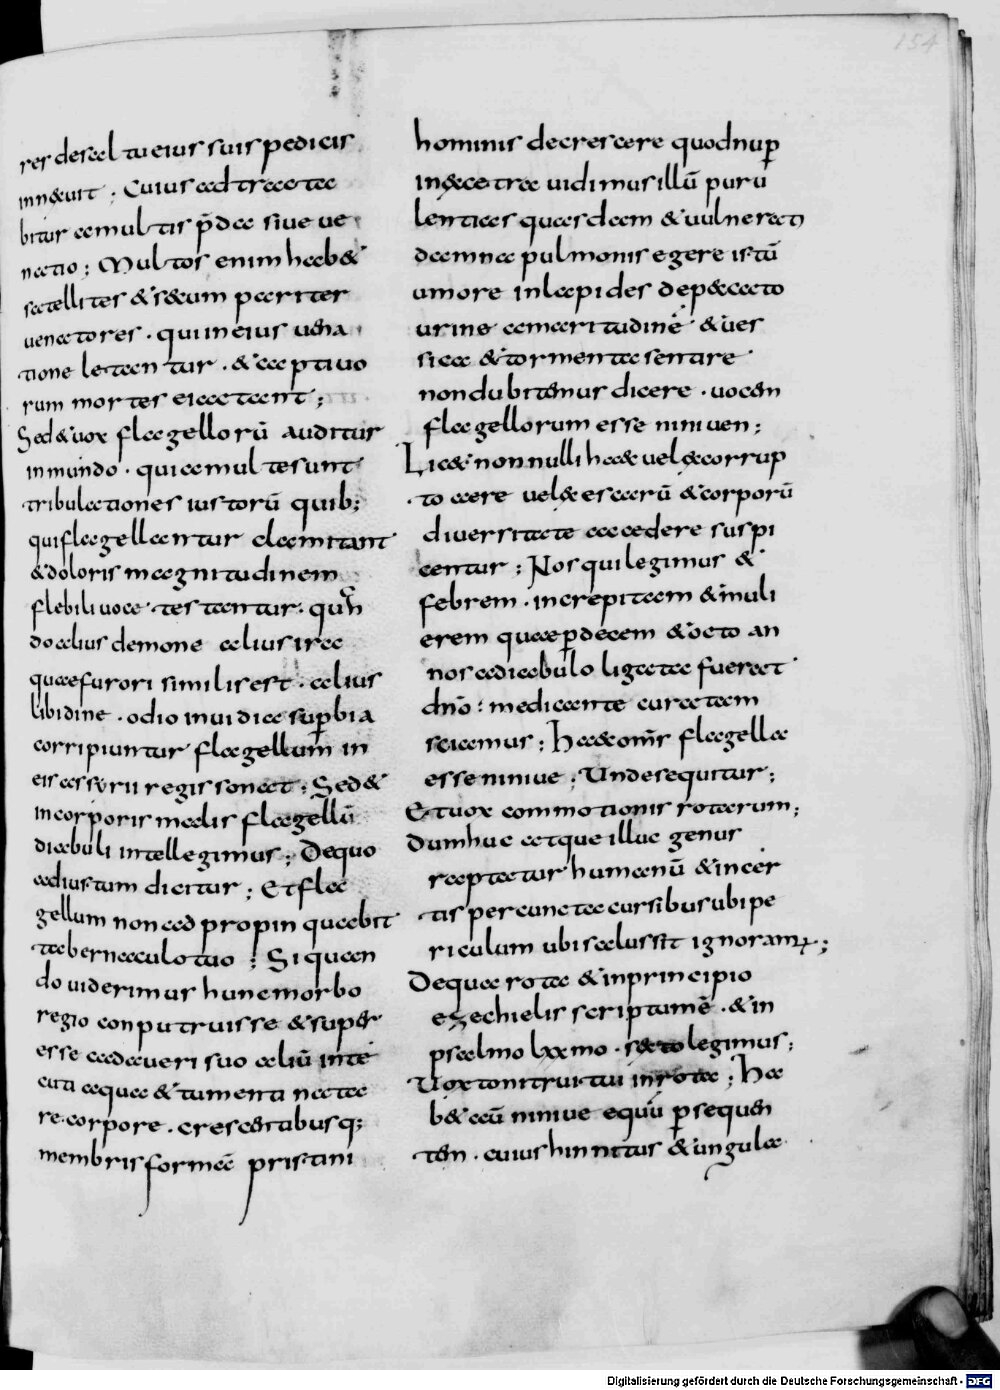 154
res de saltu eius suis pedicis
innexuit ; Cuius ad tracta
bitur a multis p̄da siue ue
natio ; Multos enim hab&
satellites & s&um pariter
uenatores . qui in eius uena
tione letantur . & captiuo
rum mortes eiectant ;
Sed & uox flagellorū auditur
in mundo . quia multe sunt
tribulationes iustorū quib;
qui flagellantur clamitant
& doloris magnitudinem
flebili uoce testantur . qūn
do alius demone alius ira
quae furori similis est . alius
libidine . odio inuidia sup̱bia
corripiuntur flagellum in
eis assyrii regis sonat ; Sed &
in corporis malis flagellū
diabuli intellegimus ; De quo
ad iustum dicitur ; Et fla
gellum non adpropinquabit
tabernaculo tuo ; Si quan
do uiderimus hunc morbo
regio conputruisse & super
esse cadaueri suo aliū inte
cuta aqua & tumenti nata
re corpore . crescentibusq;
membris formā pristini
hominis decrescere quod nup̱
in exactra uidimus illū puru
lentias quasdam & uulnerati
dam na pulmonis egere istū
umore in lapides dep&acto
urine amaritudinē & ues
sicae & tormenta sentire
non dubitemus dicere . uocem
flagellorum esse niniuen ;
Lic& nonnulli haec uel excorrup
to aere uel ex escarū & corporū
diuersitate accedere suspi
centur ; Nos qui legimus &
febrem . increpitam & muli
erem quae p̱ decem & octo an
nos a diabulo ligata fuerat
dn̄o : medicante curatam
sciamus ; Haec om̄s flagella
esse niniue ; Unde sequitur ;
Et uox commotionis rotarum ;
Dum huc atque illuc genus
raptatur humanū & incer
tis per cuncta cursibus ubi pe
riculum ubi salus sit ignoram; ;
De qua rota & in principio
ezechielis scriptum ē . & in
psalmo lxxmo . sexto legimus ;
Uox tonitrui tui in rota ; Ha
b& aū niniue equū p̱sequen
tem . cuius hinnitus & ungulae
Digitalisierung gefördert durch die Deutsche Forschungsgemeinschaft - DFG